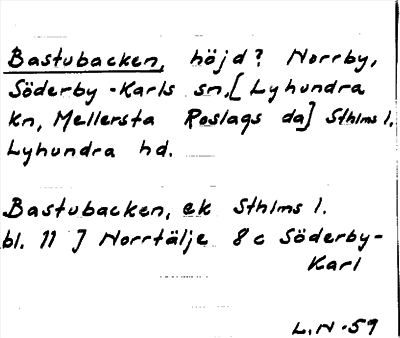 Bastubacken, höjd? Norrby,
Söderby-Karls sn,[Lyhundra
kn, Mellersta Roslags da] Sthlms l.
Lyhundra hd.
Bastubacken, ek Sthlms l.
bl. 11 J Norrtälje 8 c Söderby-
Karl
L.N.59